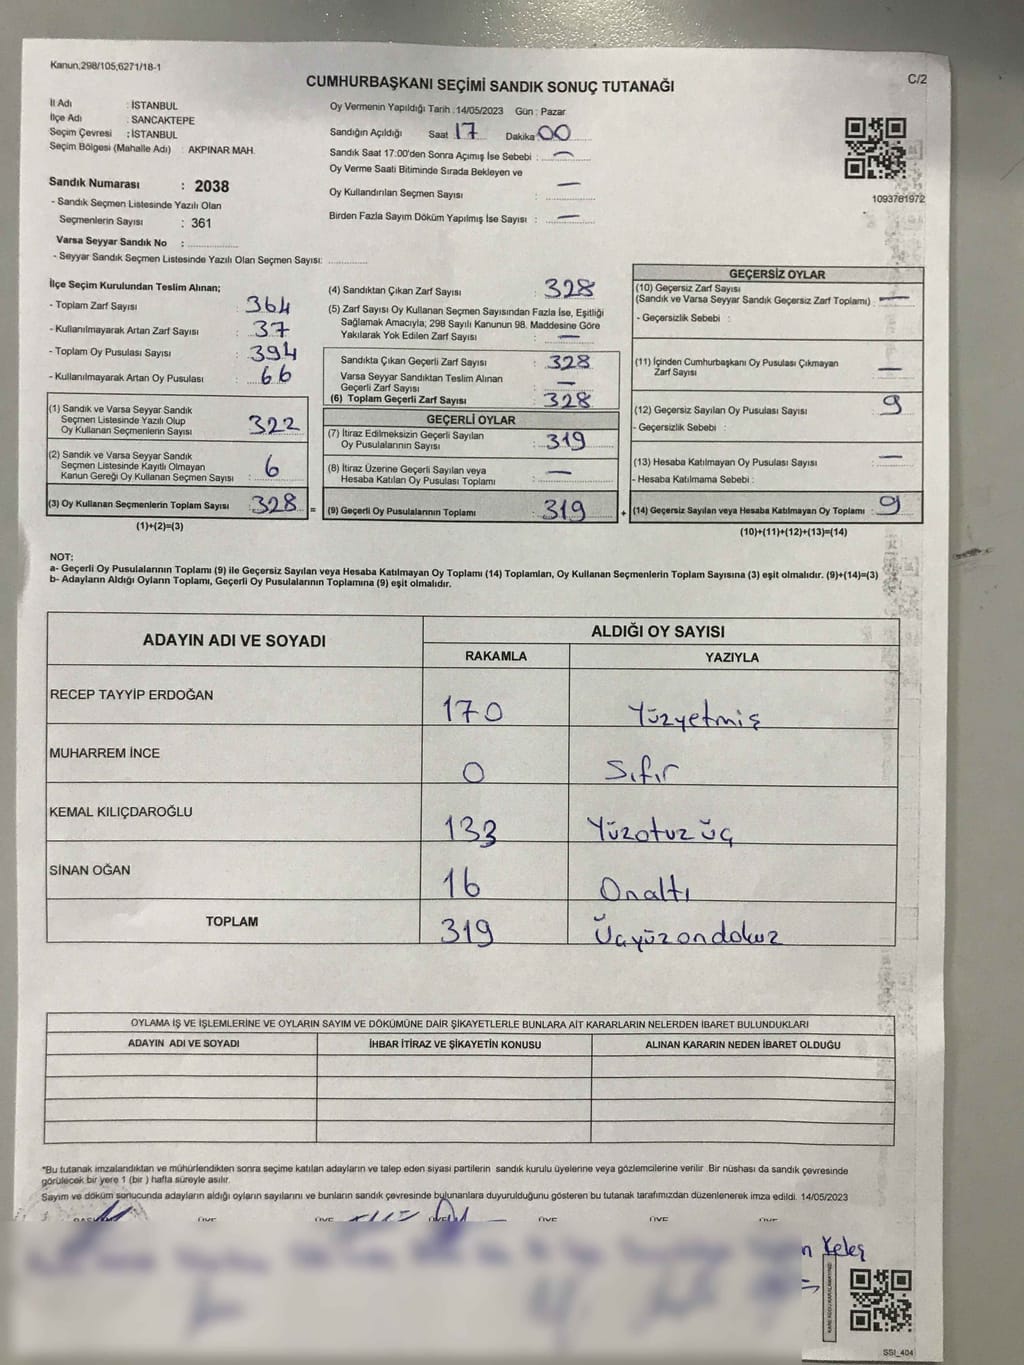 Kanun,298/105,6271/18-1
C/2
CUMHURBAŞKANI SEÇİMİ SANDIK SONUÇ TUTANAĞI
İl Adı : İSTANBUL
İlçe Adı : SANCAKTEPE
Seçim Çevresi : İSTANBUL
Seçim Bölgesi (Mahalle Adı) : AKPINAR MAH.
Sandık Numarası : 2038
- Sandık Seçmen Listesinde Yazılı Olan
Seçmenlerin Sayısı : 361
Varsa Seyyar Sandık No :
- Seyyar Sandık Seçmen Listesinde Yazılı Olan Seçmen Sayısı:
Oy Vermenin Yapıldığı Tarih : 14/05/2023 Gün : Pazar
Sandığın Açıldığı Saat : 17 Dakika : 00
Sandık Saat 17:00'den Sonra Açımış İse Sebebi : —
Oy Verme Saati Bitiminde Sırada Bekleyen ve
Oy Kullandırılan Seçmen Sayısı : —
Birden Fazla Sayım Döküm Yapılmış İse Sayısı : —
1093781972
İlçe Seçim Kurulundan Teslim Alınan;
- Toplam Zarf Sayısı : 364
- Kullanılmayarak Artan Zarf Sayısı : 37
- Toplam Oy Pusulası Sayısı : 394
- Kullanılmayarak Artan Oy Pusulası : 66
(1) Sandık ve Varsa Seyyar Sandık
Seçmen Listesinde Yazılı Olup
Oy Kullanan Seçmenlerin Sayısı : 322
(2) Sandık ve Varsa Seyyar Sandık
Seçmen Listesinde Kayıtlı Olmayan
Kanun Gereği Oy Kullanan Seçmen Sayısı : 6
(3) Oy Kullanan Seçmenlerin Toplam Sayısı : 328 =
(1)+(2)=(3)
(4) Sandıktan Çıkan Zarf Sayısı : 328
(5) Zarf Sayısı Oy Kullanan Seçmen Sayısından Fazla İse, Eşitliği
Sağlamak Amacıyla; 298 Sayılı Kanunun 98. Maddesine Göre
Yakılarak Yok Edilen Zarf Sayısı : —
Sandıkta Çıkan Geçerli Zarf Sayısı : 328
Varsa Seyyar Sandıktan Teslim Alınan
Geçerli Zarf Sayısı : —
(6) Toplam Geçerli Zarf Sayısı : 328
GEÇERLİ OYLAR
(7) İtiraz Edilmeksizin Geçerli Sayılan
Oy Pusulalarının Sayısı : 319
(8) İtiraz Üzerine Geçerli Sayılan veya
Hesaba Katılan Oy Pusulası Toplamı : —
(9) Geçerli Oy Pusulalarının Toplamı : 319 +
GEÇERSİZ OYLAR
(10) Geçersiz Zarf Sayısı
(Sandık ve Varsa Seyyar Sandık Geçersiz Zarf Toplamı) : —
- Geçersizlik Sebebi :
(11) İçinden Cumhurbaşkanı Oy Pusulası Çıkmayan
Zarf Sayısı : —
(12) Geçersiz Sayılan Oy Pusulası Sayısı : 9
- Geçersizlik Sebebi :
(13) Hesaba Katılmayan Oy Pusulası Sayısı : —
- Hesaba Katılmama Sebebi :
(14) Geçersiz Sayılan veya Hesaba Katılmayan Oy Toplamı : 9
(10)+(11)+(12)+(13)=(14)
NOT:
a- Geçerli Oy Pusulalarının Toplamı (9) ile Geçersiz Sayılan veya Hesaba Katılmayan Oy Toplamı (14) Toplamları, Oy Kullanan Seçmenlerin Toplam Sayısına (3) eşit olmalıdır. (9)+(14)=(3)
b- Adayların Aldığı Oyların Toplamı, Geçerli Oy Pusulalarının Toplamına (9) eşit olmalıdır.
ADAYIN ADI VE SOYADI
ALDIĞI OY SAYISI
RAKAMLA YAZIYLA
RECEP TAYYİP ERDOĞAN 170 Yüzyetmiş
MUHARREM İNCE 0 Sıfır
KEMAL KILIÇDAROĞLU 133 Yüzotuz üç
SİNAN OĞAN 16 Onaltı
TOPLAM 319 Üçyüzondokuz
OYLAMA İŞ VE İŞLEMLERİNE VE OYLARIN SAYIM VE DÖKÜMÜNE DAİR ŞİKAYETLERLE BUNLARA AİT KARARLARIN NELERDEN İBARET BULUNDUKLARI
ADAYIN ADI VE SOYADI İHBAR İTİRAZ VE ŞİKAYETİN KONUSU ALINAN KARARIN NEDEN İBARET OLDUĞU
*Bu tutanak imzalandıktan ve mühürlendikten sonra seçime katılan adayların ve talep eden siyasi partilerin sandık kurulu üyelerine veya gözlemcilerine verilir. Bir nüshası da sandık çevresinde
görülecek bir yere 1 (bir ) hafta süreyle asılır.
Sayım ve döküm sonucunda adayların aldığı oyların sayılarını ve bunların sandık çevresinde bulunanlara duyurulduğunu gösteren bu tutanak tarafımızdan düzenlenerek imza edildi. 14/05/2023
BAŞKAN ÜYE ÜYE ÜYE ÜYE ÜYE ÜYE
n Keleş
SSI_404